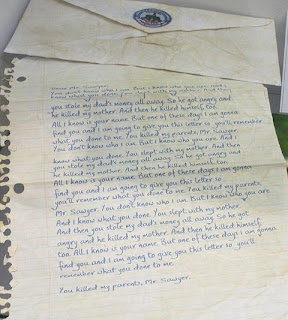 Dear Mr. Sawyer
You don't know who I am. But I know who you are and I
know what you done. You slept with my mother. And then
you stole my dad's money all away. So he got angry and
he killed my mother. And then he killed himself, too.
All I know is your name. But one of these days I am gonna
find you and I am going to give you this letter so you'll remember
what you done to me. You killed my parents, Mr. Sawyer.
You don't know who I am. But I know who you are. And I
know what you done. You slept with my mother. And then
you stole my dad's money all away. So he got angry and
he killed my mother. And then he killed himself, too.
All I know is your name. But one of these days I am gonna
find you and I am going to give you this letter so
you'll remember what you done to me. You killed my parents,
Mr. Sawyer. You don't know who I am. But I know who you are
And I know what you done. You slept with my mother.
And then you stole my dad's money all away. So he got
angry and he killed my mother. And then he killed himself
too. All I know is your name. But one of these days I am gonna
find you and I am going to give you this letter so you'll
remember what you done to me.
You killed my parents, Mr. Sawyer.